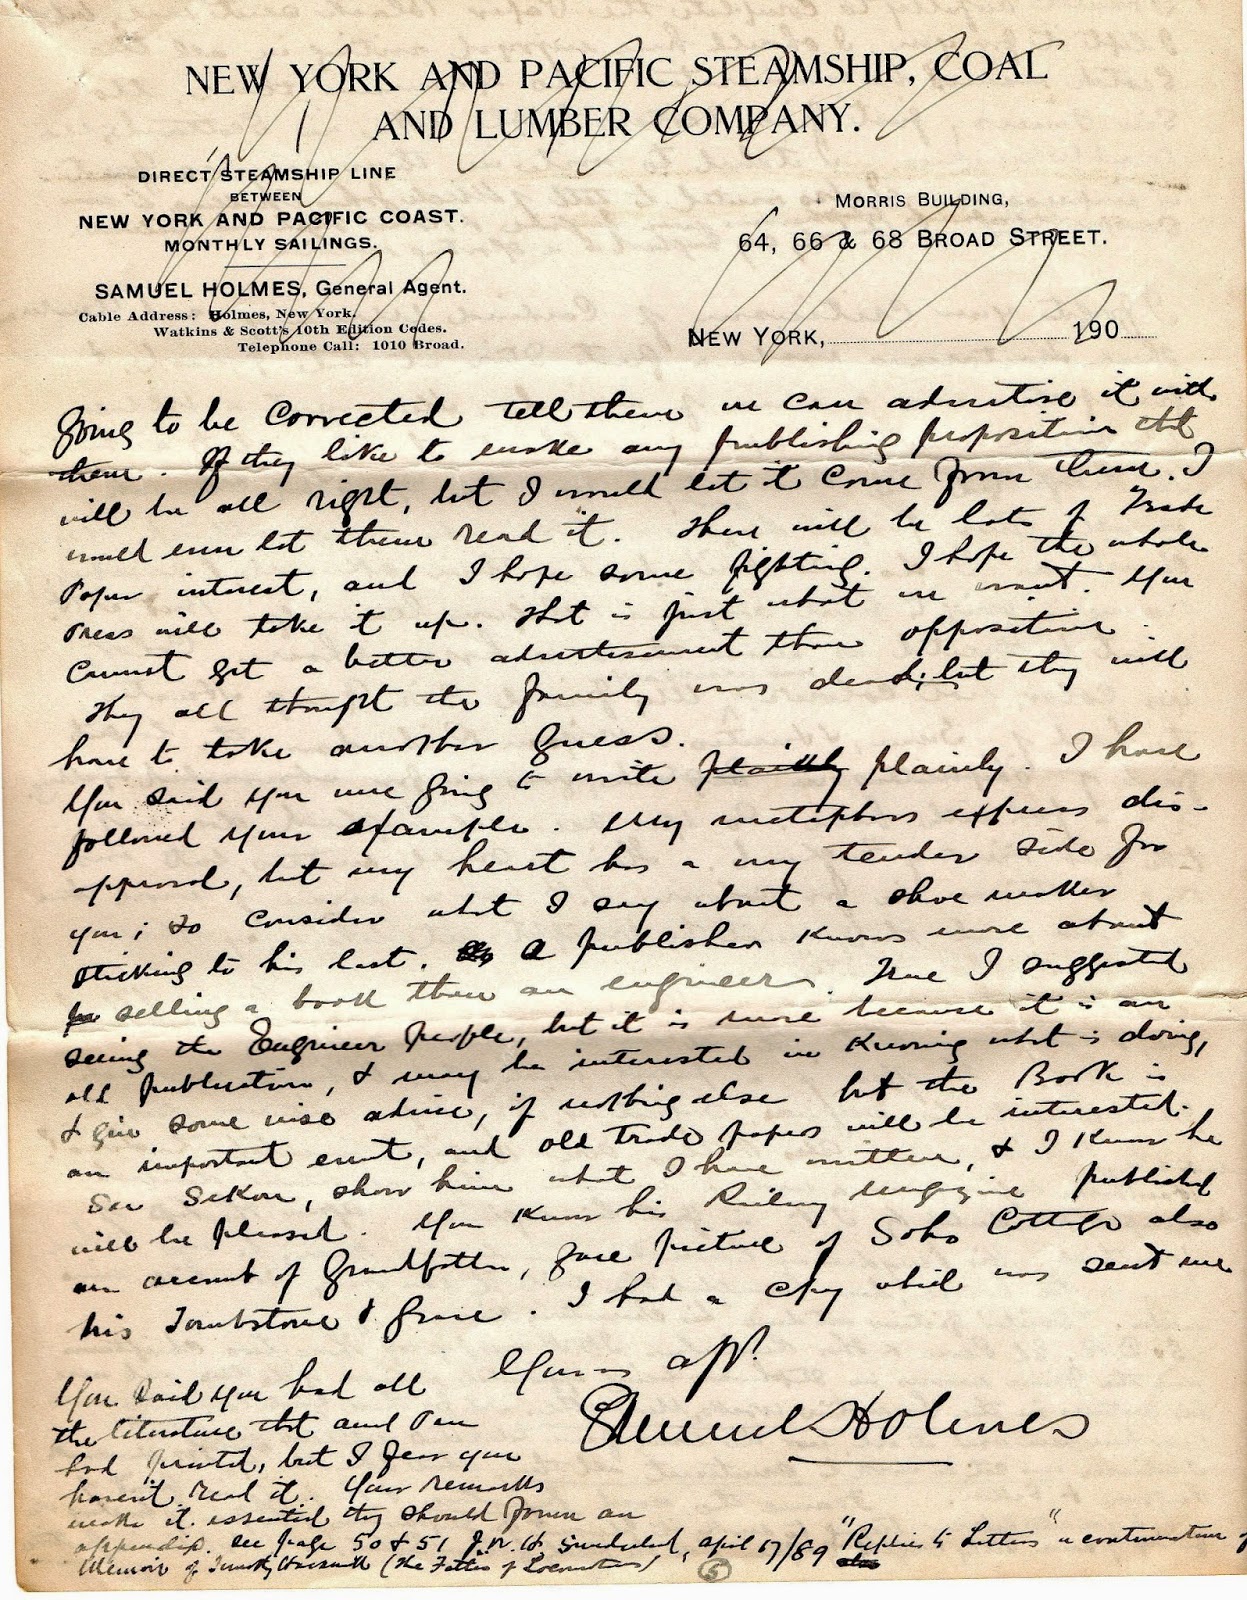 NEW YORK AND PACIFIC STEAMSHIP, COAL
AND LUMBER COMPANY.
DIRECT STEAMSHIP LINE
BETWEEN
NEW YORK AND PACIFIC COAST.
MONTHLY SAILINGS.
SAMUEL HOLMES, General Agent.
Cable Address: Holmes, New York.
Watkins & Scott's 10th Edition Codes.
Telephone Call: 1010 Broad.
MORRIS BUILDING,
64, 66 & 68 BROAD STREET.
NEW YORK, 190
going to be corrected tell them we can advertise it with
them. If they like to make any publishing proposition that
will be all right, but I would let it come from them. I
would even let them read it. There will be lots of Trade
Paper interest, and I hope some fighting. I hope the whole
Press will take it up. That is just what we want. You
cannot get a better advertisement than opposition.
They all thought the family was dead; but they will
have to take another guess.
You said you were going to write plainly plainly. I have
followed your example. My metaphors express dis-
approval, but my heart has a very tender side for
you; so consider what I say about a shoe maker
sticking to his last. A publisher knows more about
selling a book than an engineer. True I suggested
seeing the Engineer people, but it is more because it is an
old publication, & may be interested in knowing what is doing,
& give some wise advice, if nothing else but the Book is
an important event, and old trade papers will be interested.
See , show him what I have written, & I know he
will be pleased. You know his Railway magazine published
an account of Grandfather, gave picture of Soho Cottage also
his Tombstone & Grave. I had a copy which was sent me
Yours affy
Samuel Holmes
You said you had all
the literature that aunt Pen
had printed, but I fear you
haven't read it. Your remarks
make it essential they should form an
appendix. see page 50 & 51 J.W.H , april 17/89 "Replies to Letters" a continuation of
Memoir of Timothy Hackworth (the Father of Locomotives)
5